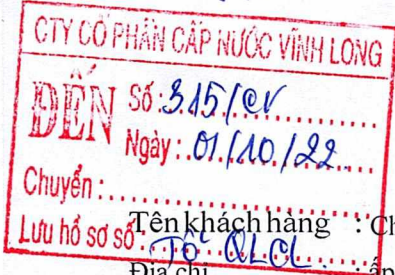 CTY CỔ PHẦN CẤP NƯỚC VĨNH LONG
ĐẾN Số: 315/CV
Ngày: 01/10/22
Chuyển:
Lưu hồ sơ số Tổ QLCL
Tên khách hàng : Ch
Địa chỉ : ấp